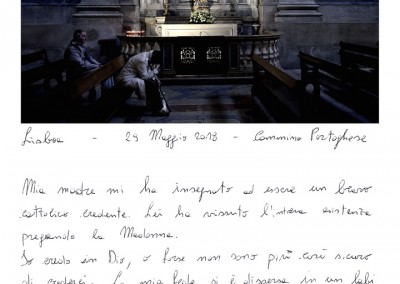 Lisboa - 29 Maggio 2018 - Cammino Portoghese
Mia madre mi ha insegnato ad essere un bravo
cattolico credente. Lei ha vissuto l'intera esistenza
pregando la Madonna.
Io credo in Dio, o forse non sono più così sicuro
di crederci. La mia fede si è dispersa in un labi